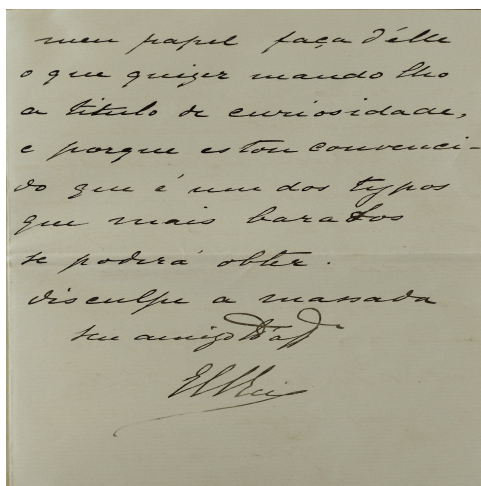 meu papel faça d'élle
o que quizer mando lho
a titulo de curiosidade,
e porque estou convenci-
do que é um dos typos
que mais baratos
se poderá obter.
disculpe a massada
seu amigo